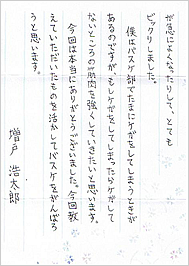 が急によくなったりして、とても
ビックリしました。
僕はバスケ部でたまにケガをしてしまうときが
あるのですが、もしケガをしてしまったらケガして
ないところの筋肉を強くしていきたいと思います。
今回は本当にありがとうございました。今回教
えていただいたものを活かしてバスケをがんばろ
うと思います。
増戸 浩太郎